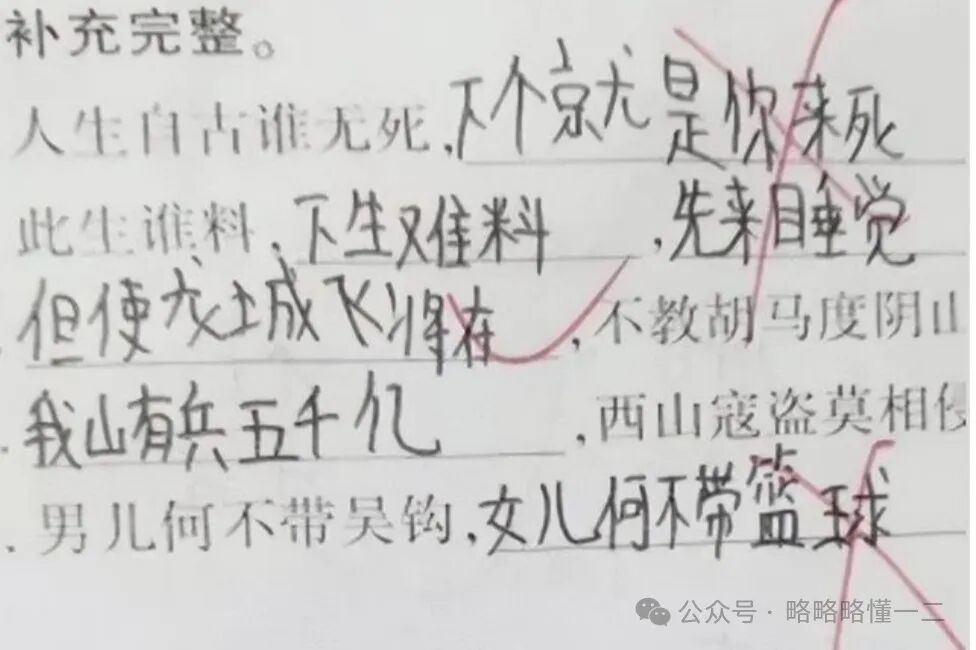 补充完整。
人生自古谁无死,下个京尤是你来死
此生谁料,下生难料,先来目垂觉
但使龙城飞将在,不教胡马度阴山
我山有兵五千亿,西山寇盗莫相侵
男儿何不带吴钩,女儿何不带篮球
公众号·略略略懂一二